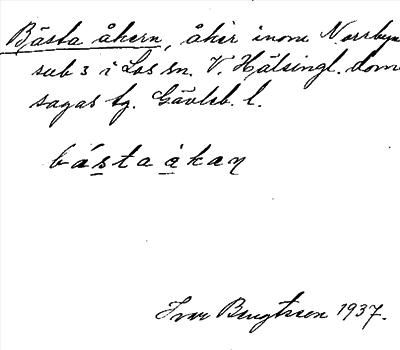 Bästa åkern, åker inom Norrbyn
sub 3 i Los sn. V. Hälsingl. dom
sagas tg. Gävleb. l.
bá̱sta å̱kaɳ
Ivar Bengtsson 1937.